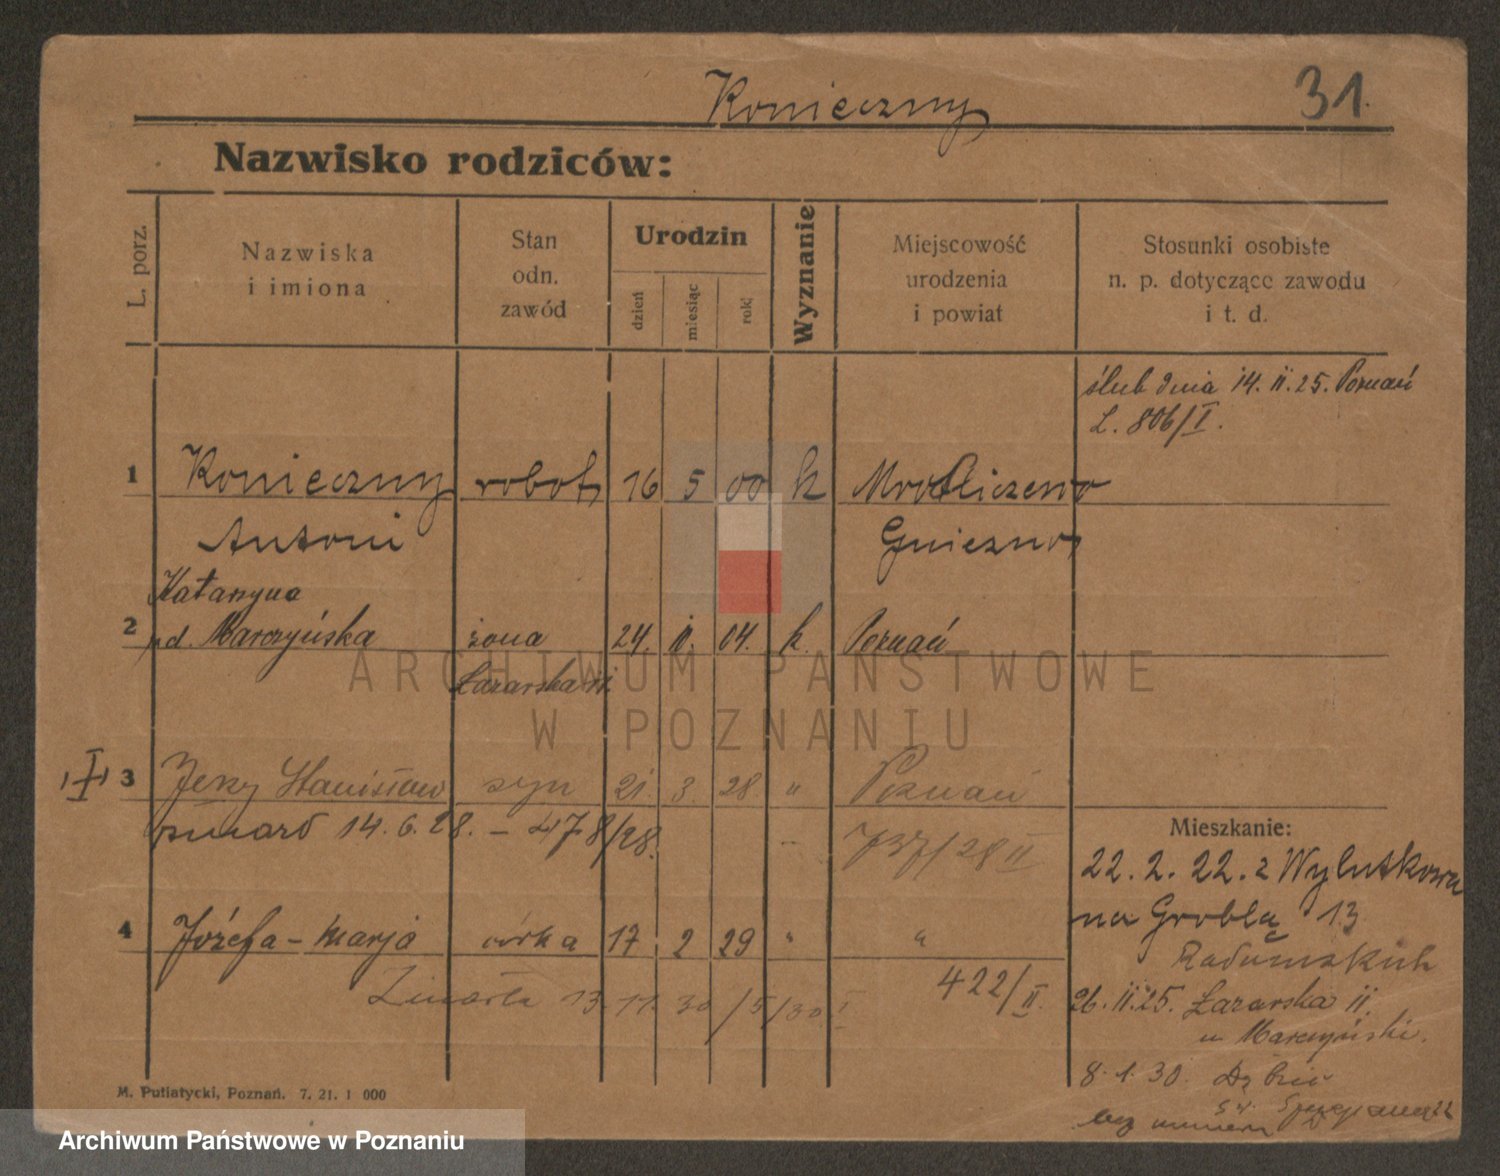 Konieczny 31.
Nazwisko rodziców:
L. porz.
Nazwiska
i imiona
Stan
odn.
zawód
Urodzin
dzień
miesiąc
rok
Wyznanie
Miejscowość
urodzenia
i powiat
Stosunki osobiste
n. p. dotyczące zawodu
i t. d.
ślub dnia 14. II. 25. Poznań
L. 806/I.
1 Konieczny robot 16 5 00 k
Antoni Gniezno
Katarzyna
2 Marczyńska żona 24. II. 04. k. Poznań
Łazarska 11
ARCHIWUM PAŃSTWOWE
W POZNANIU
3 Jerzy Stanisław syn 21. 3. 28. " Poznań
zmarł 14. 6. 28. – 478/28. 737/28 II
4 Józefa – Marja córka 17 2 29 " "
Zmarła 13. 11. 30 /5/30. I 422/II.
Mieszkanie:
22. 2. 22. z
na Groblą 13
26. II. 25. Łazarska 11.
u Marczyński.
8. 1. 30.
bez numeru
M. Putiatycki, Poznań. 7. 21. 1 000
Archiwum Państwowe w Poznaniu